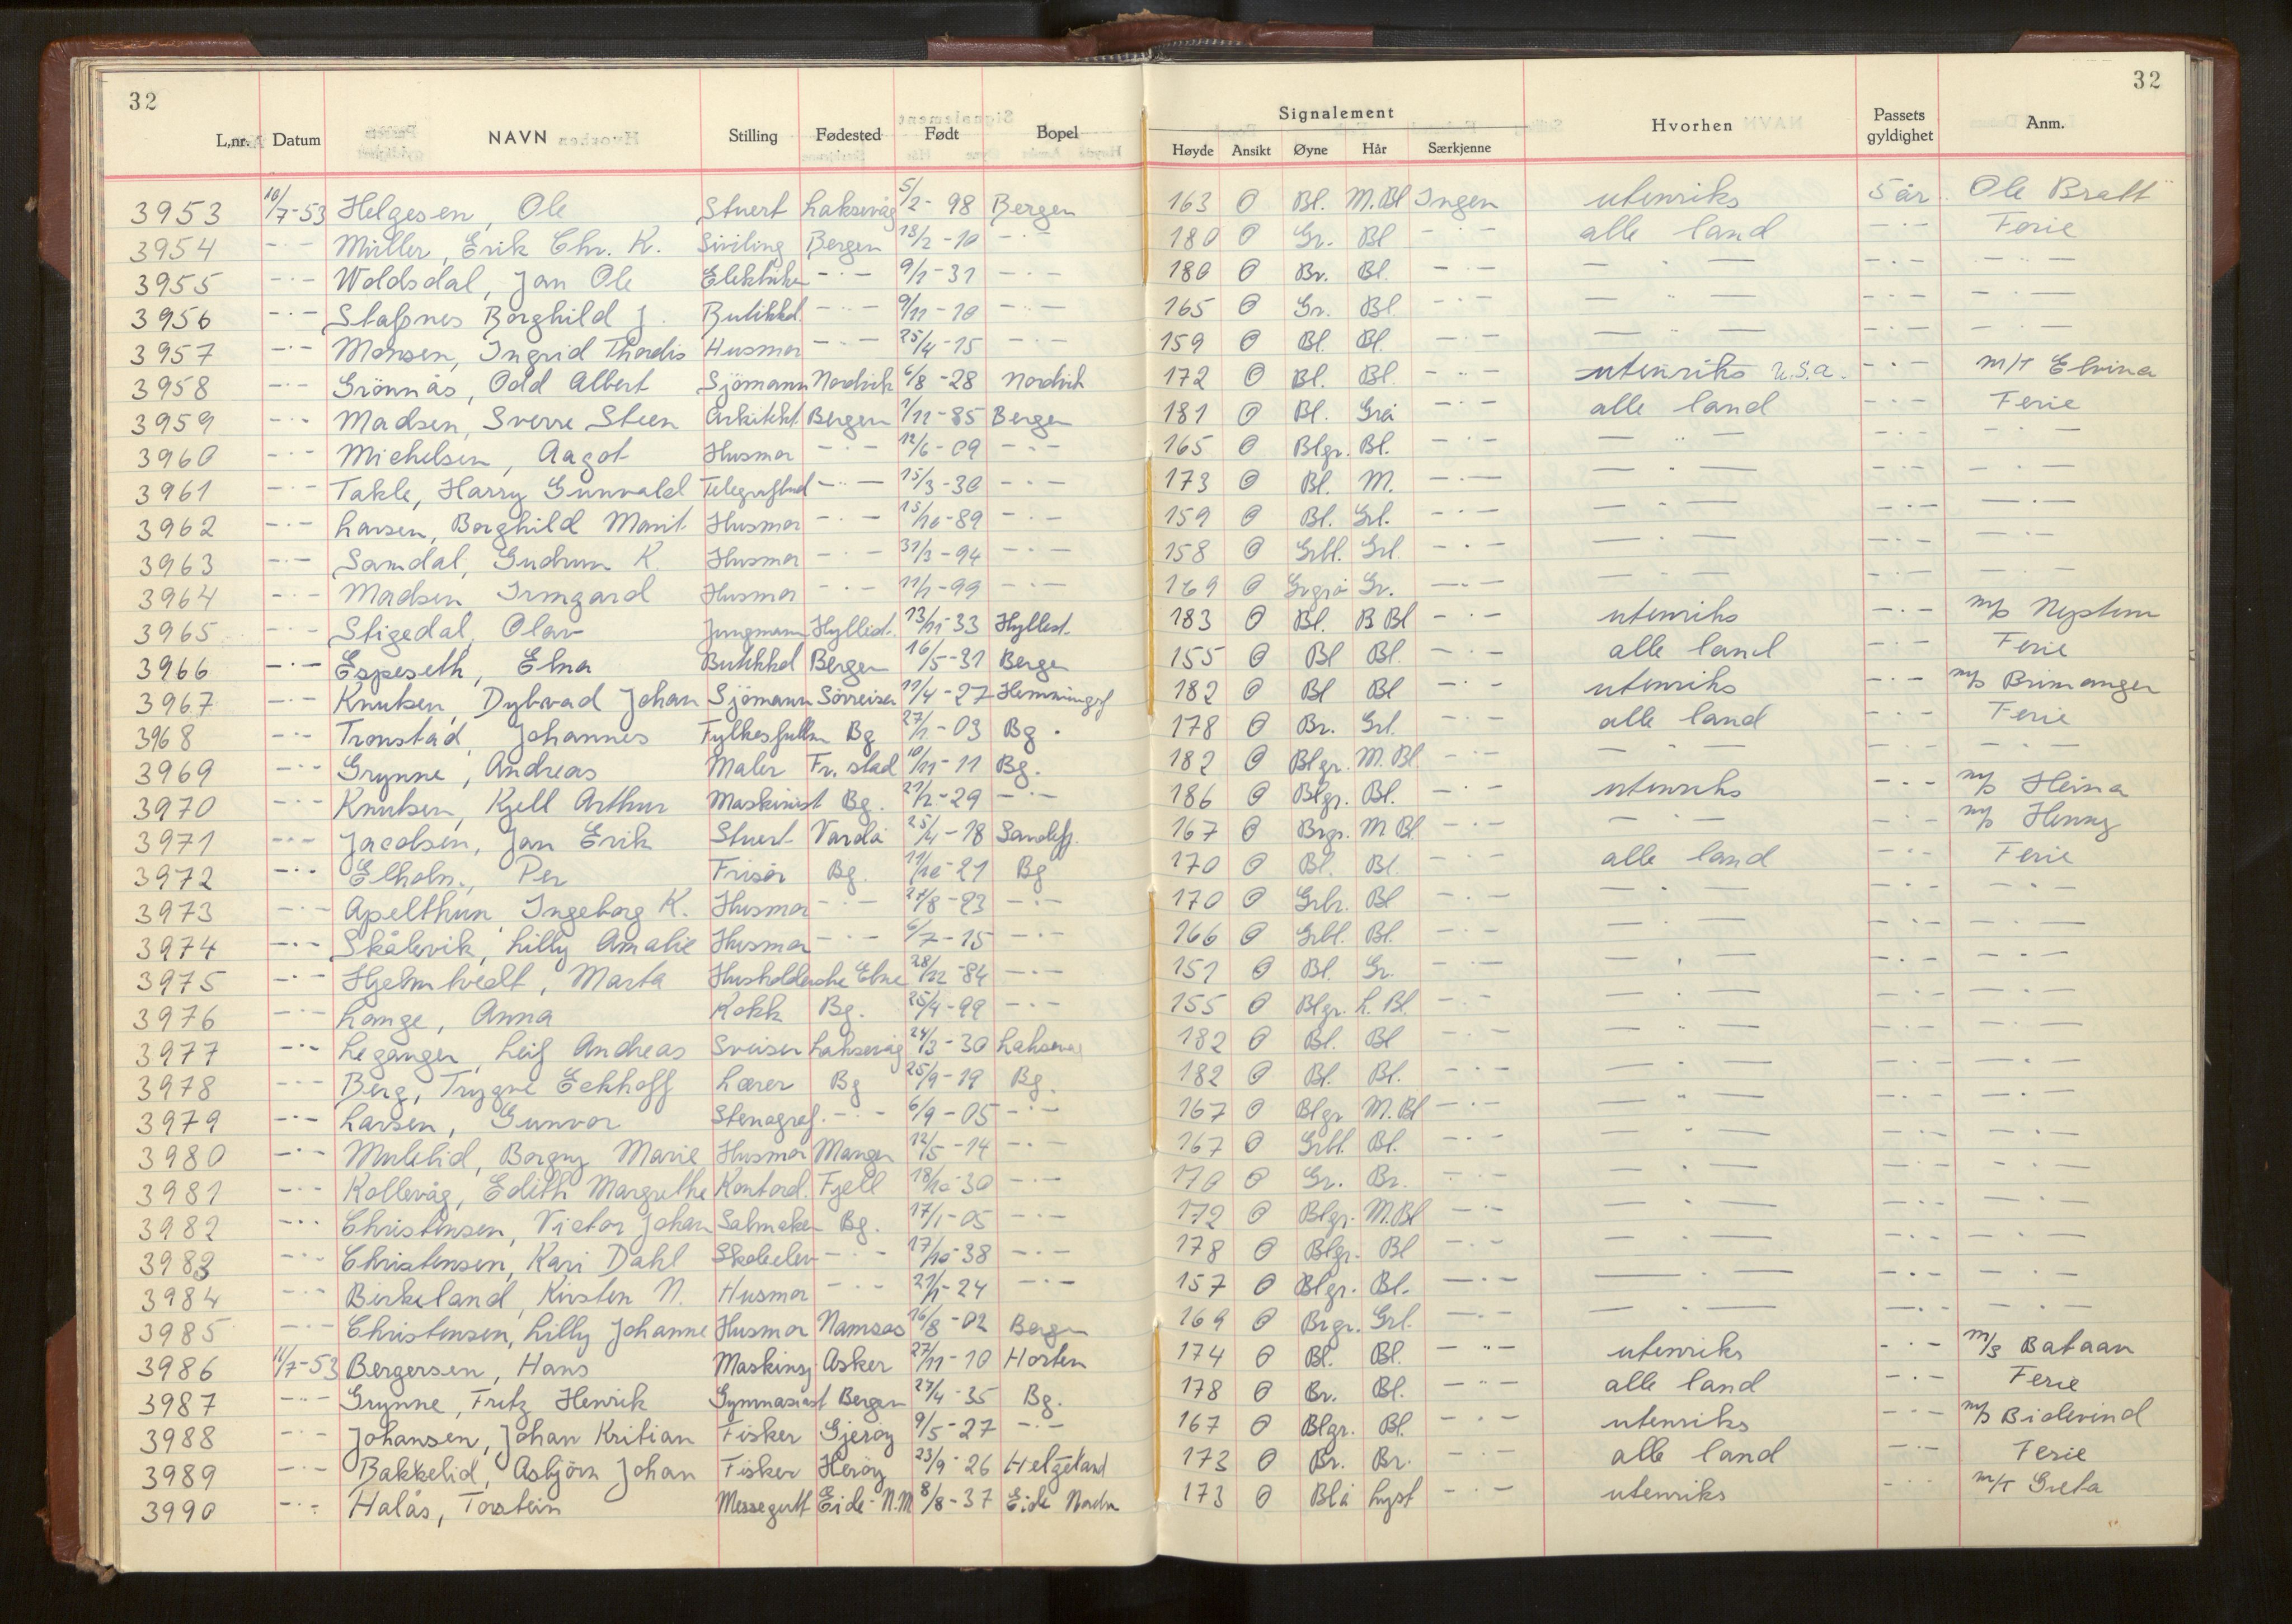 32
32
Signalement
L.nr. Datum NAVN Stilling Fødested Født Bopel Høyde Ansikt Øyne Hår Særkjenne Hvorhen Passets gyldighet Anm.
3953 10/7-53 Helgesen, Ole Stuert Laksevåg 5/2-98 Bergen 163 O Bl. M.Bl Ingen utenriks 5 år Ole Bratt
3954 -·- Müller, Erik Chr. K. Siviling Bergen 18/2-10 -·- 180 O Gr. Bl -·- alle land -·- Ferie
3955 -·- Woldsdal, Jan Ole Elektriker -·- 9/1-31 -·- 180 O Br. Bl. -·- -"- -·- -·-
3956 -·- Stafsnes Borghild J. Butikkd. -·- 9/11-10 -·- 165 O Gr. Bl. -·- -"- -·- -·-
3957 -·- Monsen, Ingrid Thordis Husmor -·- 25/4-15 -·- 159 O Bl. Bl. -·- -"- -·- -·-
3958 -·- Grönnås, Odd Albert Sjömann Nordvik 6/8-28 Nordvik 172 O Bl. Bl. -·- utenriks U.S.A. -·- M/T Elvina
3959 -·- Madsen, Sverre Steen Arkitekt Bergen 1/11-85 Bergen 181 O Bl. Grå -·- alle land -·- Ferie
3960 -·- Michelsen, Aagot Husmor -·- 12/6-09 -·- 165 O Blgr. Bl. -·- -"- -·- -·-
3961 -·- Takle, Harry Gunvald -·- 15/3-30 -·- 173 O Bl. M. -·- -"- -·- -·-
3962 -·- Larsen, Borghild Marit Husmor -·- 15/10-89 -·- 159 O Bl. Grl. -·- -"- -·- -·-
3963 -·- Samdal, Gudrun K. Husmor -·- 31/3-94 -·- 158 O Grbl. Grl. -·- -·- -·- -·-
3964 -·- Madsen, Irmgard Husmor -·- 11/1-99 -·- 169 O Grgrå Gr. -·- -·- -·- -·-
3965 -·- Stigedal, Olav Jungmann Hyllest. 13/11-33 Hyllest. 183 O Bl. B Bl -·- utenriks -·- m/s Neptun
3966 -·- Espeseth, Elna Butikkd Bergen 16/5-31 Bergen 155 O Bl Bl. -·- alle land -·- Ferie
3967 -·- Knutsen, Dybvad Johan Sjömann Sörreisa 11/4-27 182 O Bl Bl -·- utenriks -·- m/s Brimanger
3968 -·- Tronstad, Johannes Fylkesfullm Bg 27/1-03 Bg. 178 O Br. Grl. -·- alle land -·- Ferie
3969 -·- Grynne, Andreas Maler Fr.stad 10/11-11 Bg. 182 O Blgr. M.Bl -·- -"- -·- -·-
3970 -·- Knutsen, Kjell Arthur Maskinist Bg. 21/2-29 -·- 186 O Blgr. Bl. -·- utenriks -·- m/s Heina
3971 -·- Jacobsen, Jan Erik Stuert Vardö 25/4-18 Sandefj. 167 O Brgr. M Bl -·- -·- -·- m/s Henny
3972 -·- Elholm, Per Frisör Bg. 11/10-21 Bg 170 O Bl. Bl. -·- alle land -·- Ferie
3973 -·- Apelthun Ingeborg K. Husmor -·- 27/8-23 -·- 170 O Grbr. Bl -·- -"- -·- -·-
3974 -·- Skålevik, Lilly Amalie Husmor -·- 6/7-15 -·- 166 O Grbl. Bl. -·- -·- -·- -·-
3975 -·- Hjelmtvedt, Marta Husholderske Etne 28/12-84 -·- 151 O Bl. Gr. -·- -·- -·- -·-
3976 -·- Lange, Anna Kokk Bg. 25/4-99 -·- 155 O Blgr. L. Bl. -·- -·- -·- -·-
3977 -·- Leganger, Leif Andreas Sveiser Laksevåg 24/3-30 Laksevåg 182 O Bl. Bl -·- -"- -·- -·-
3978 -·- Berg, Trygve Eckhoff Lærer Bg 25/9-19 Bg. 182 O Bl. Bl. -·- -·- -·- -·-
3979 -·- Larsen, Gunvor Stenograf. -·- 6/9-05 -·- 167 O Blgr M.Bl -·- -·- -·- -·-
3980 -·- Mulelid, Borgny Marie Husmor Manger 12/5-14 -·- 167 O Grbl. Bl. -·- -"- -·- -·-
3981 -·- Kollevåg, Edith Margrethe Kontord. Fjell 18/10-30 -·- 170 O Gr. Br. -·- -·- -·- -·-
3982 -·- Christensen, Victor Johan Salmaker Bg. 17/1-05 -·- 172 O Blgr. M.Bl -·- -·- -·- -·-
3983 -·- Christensen, Kari Dahl Skoleelev -·- 17/10-38 -·- 178 O Blgr. Bl -·- -"- -·- -·-
3984 -·- Birkeland, Kirsten N. Husmor -·- 21/1-24 -·- 157 O Blgr. Bl. -·- -·- -·- -·-
3985 -·- Christensen, Lilly Johanne Husmor Namsos 16/8-02 Bergen 169 O Brgr. Grl. -·- -·- -·- -·-
3986 11/7-53 Bergersen, Hans Maskinsj. Asker 27/11-10 Horten 174 O Bl. Bl. -·- utenriks -·- M/s Bataan
3987 -·- Grynne, Fritz Henrik Gymnasiast Bergen 27/4-35 Bg. 178 O Br. Bl. -·- alle land -·- Ferie
3988 -·- Johansen, Johan Kritian Fisker Gjeröy 9/5-27 -·- 167 O Blgr. Bl. -·- utenriks -·- m/s Bidevind
3989 -·- Bakkelid, Asbjörn Johan Fisker Heröy 23/9-26 Helgeland 173 O Br. Br. -·- alle land -·- Ferie
3990 -·- Halås, Torstein Messegutt Eide-N.M 8/8-37 Eide Nordm 173 O Blå Lyst -·- utenriks -·- M/T Greta